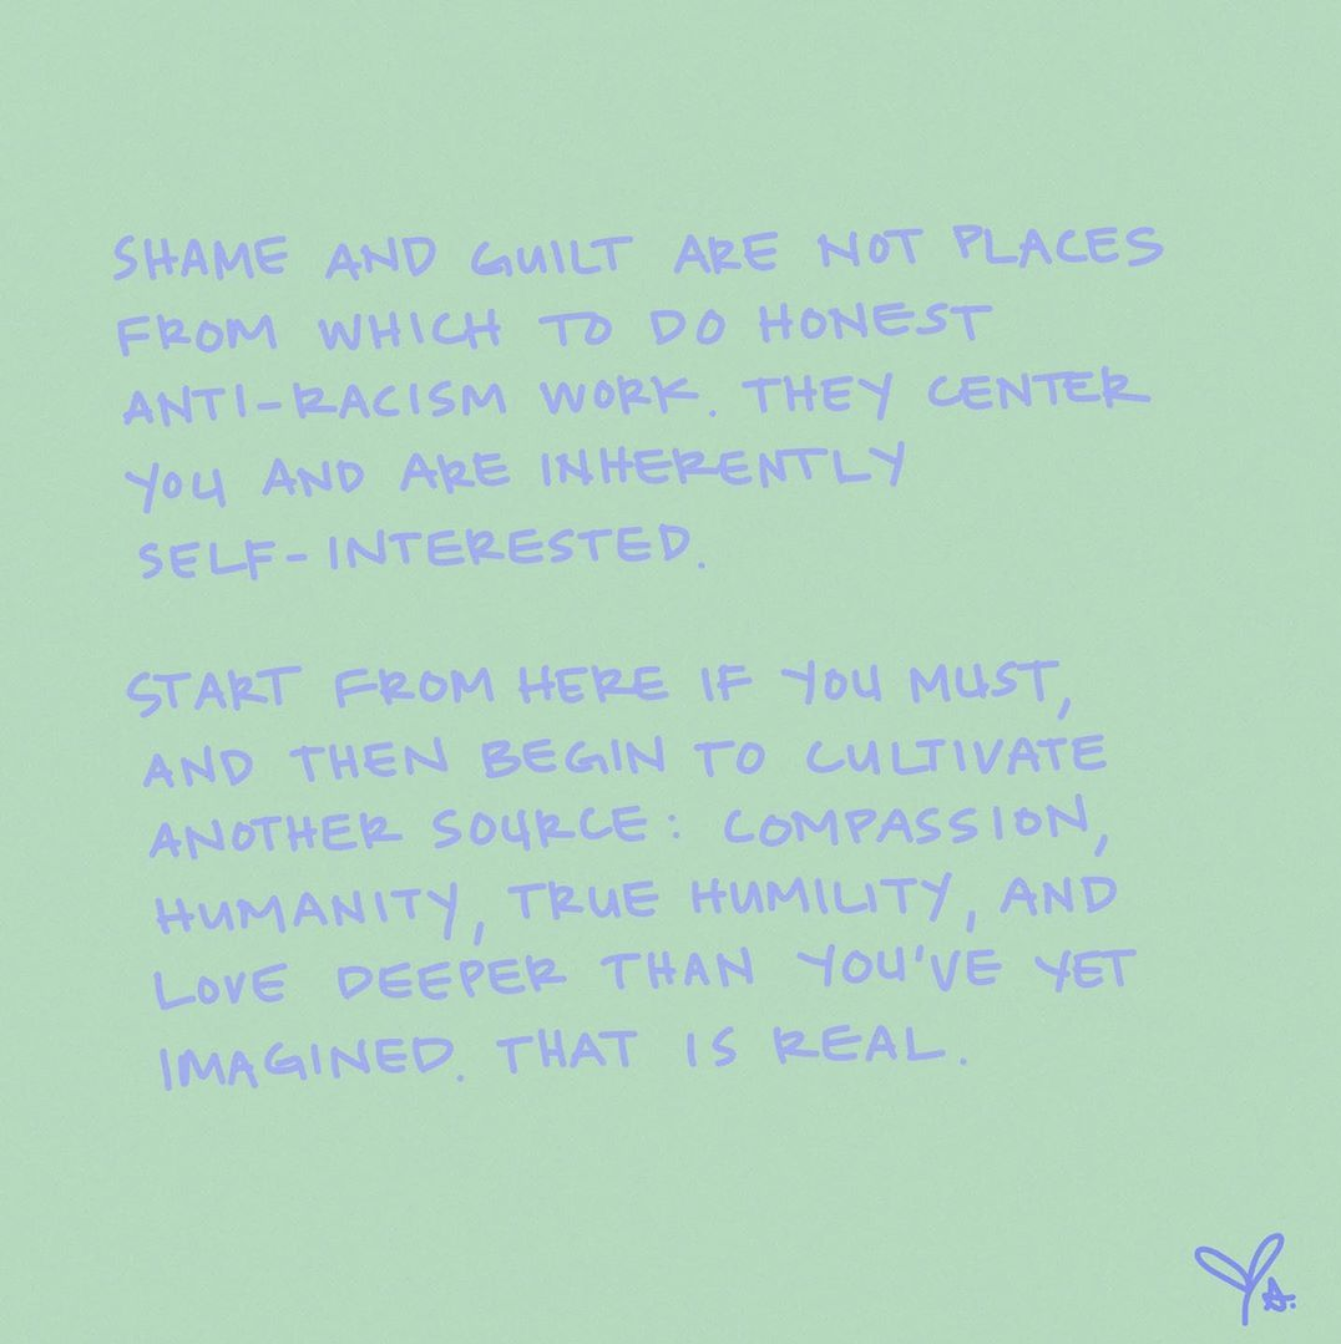 SHAME AND GUILT ARE NOT PLACES
FROM WHICH TO DO HONEST
ANTI-RACISM WORK. THEY CENTER
YOU AND ARE INHERENTLY
SELF-INTERESTED.
START FROM HERE IF YOU MUST,
AND THEN BEGIN TO CULTIVATE
ANOTHER SOURCE: COMPASSION,
HUMANITY, TRUE HUMILITY, AND
LOVE DEEPER THAN YOU'VE YET
IMAGINED. THAT IS REAL.